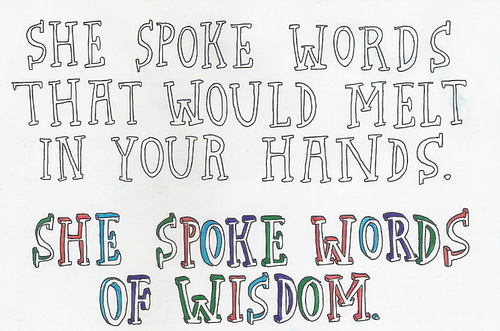 SHE SPOKE WORDS
THAT WOULD MELT
IN YOUR HANDS.
SHE SPOKE WORDS
OF WISDOM.